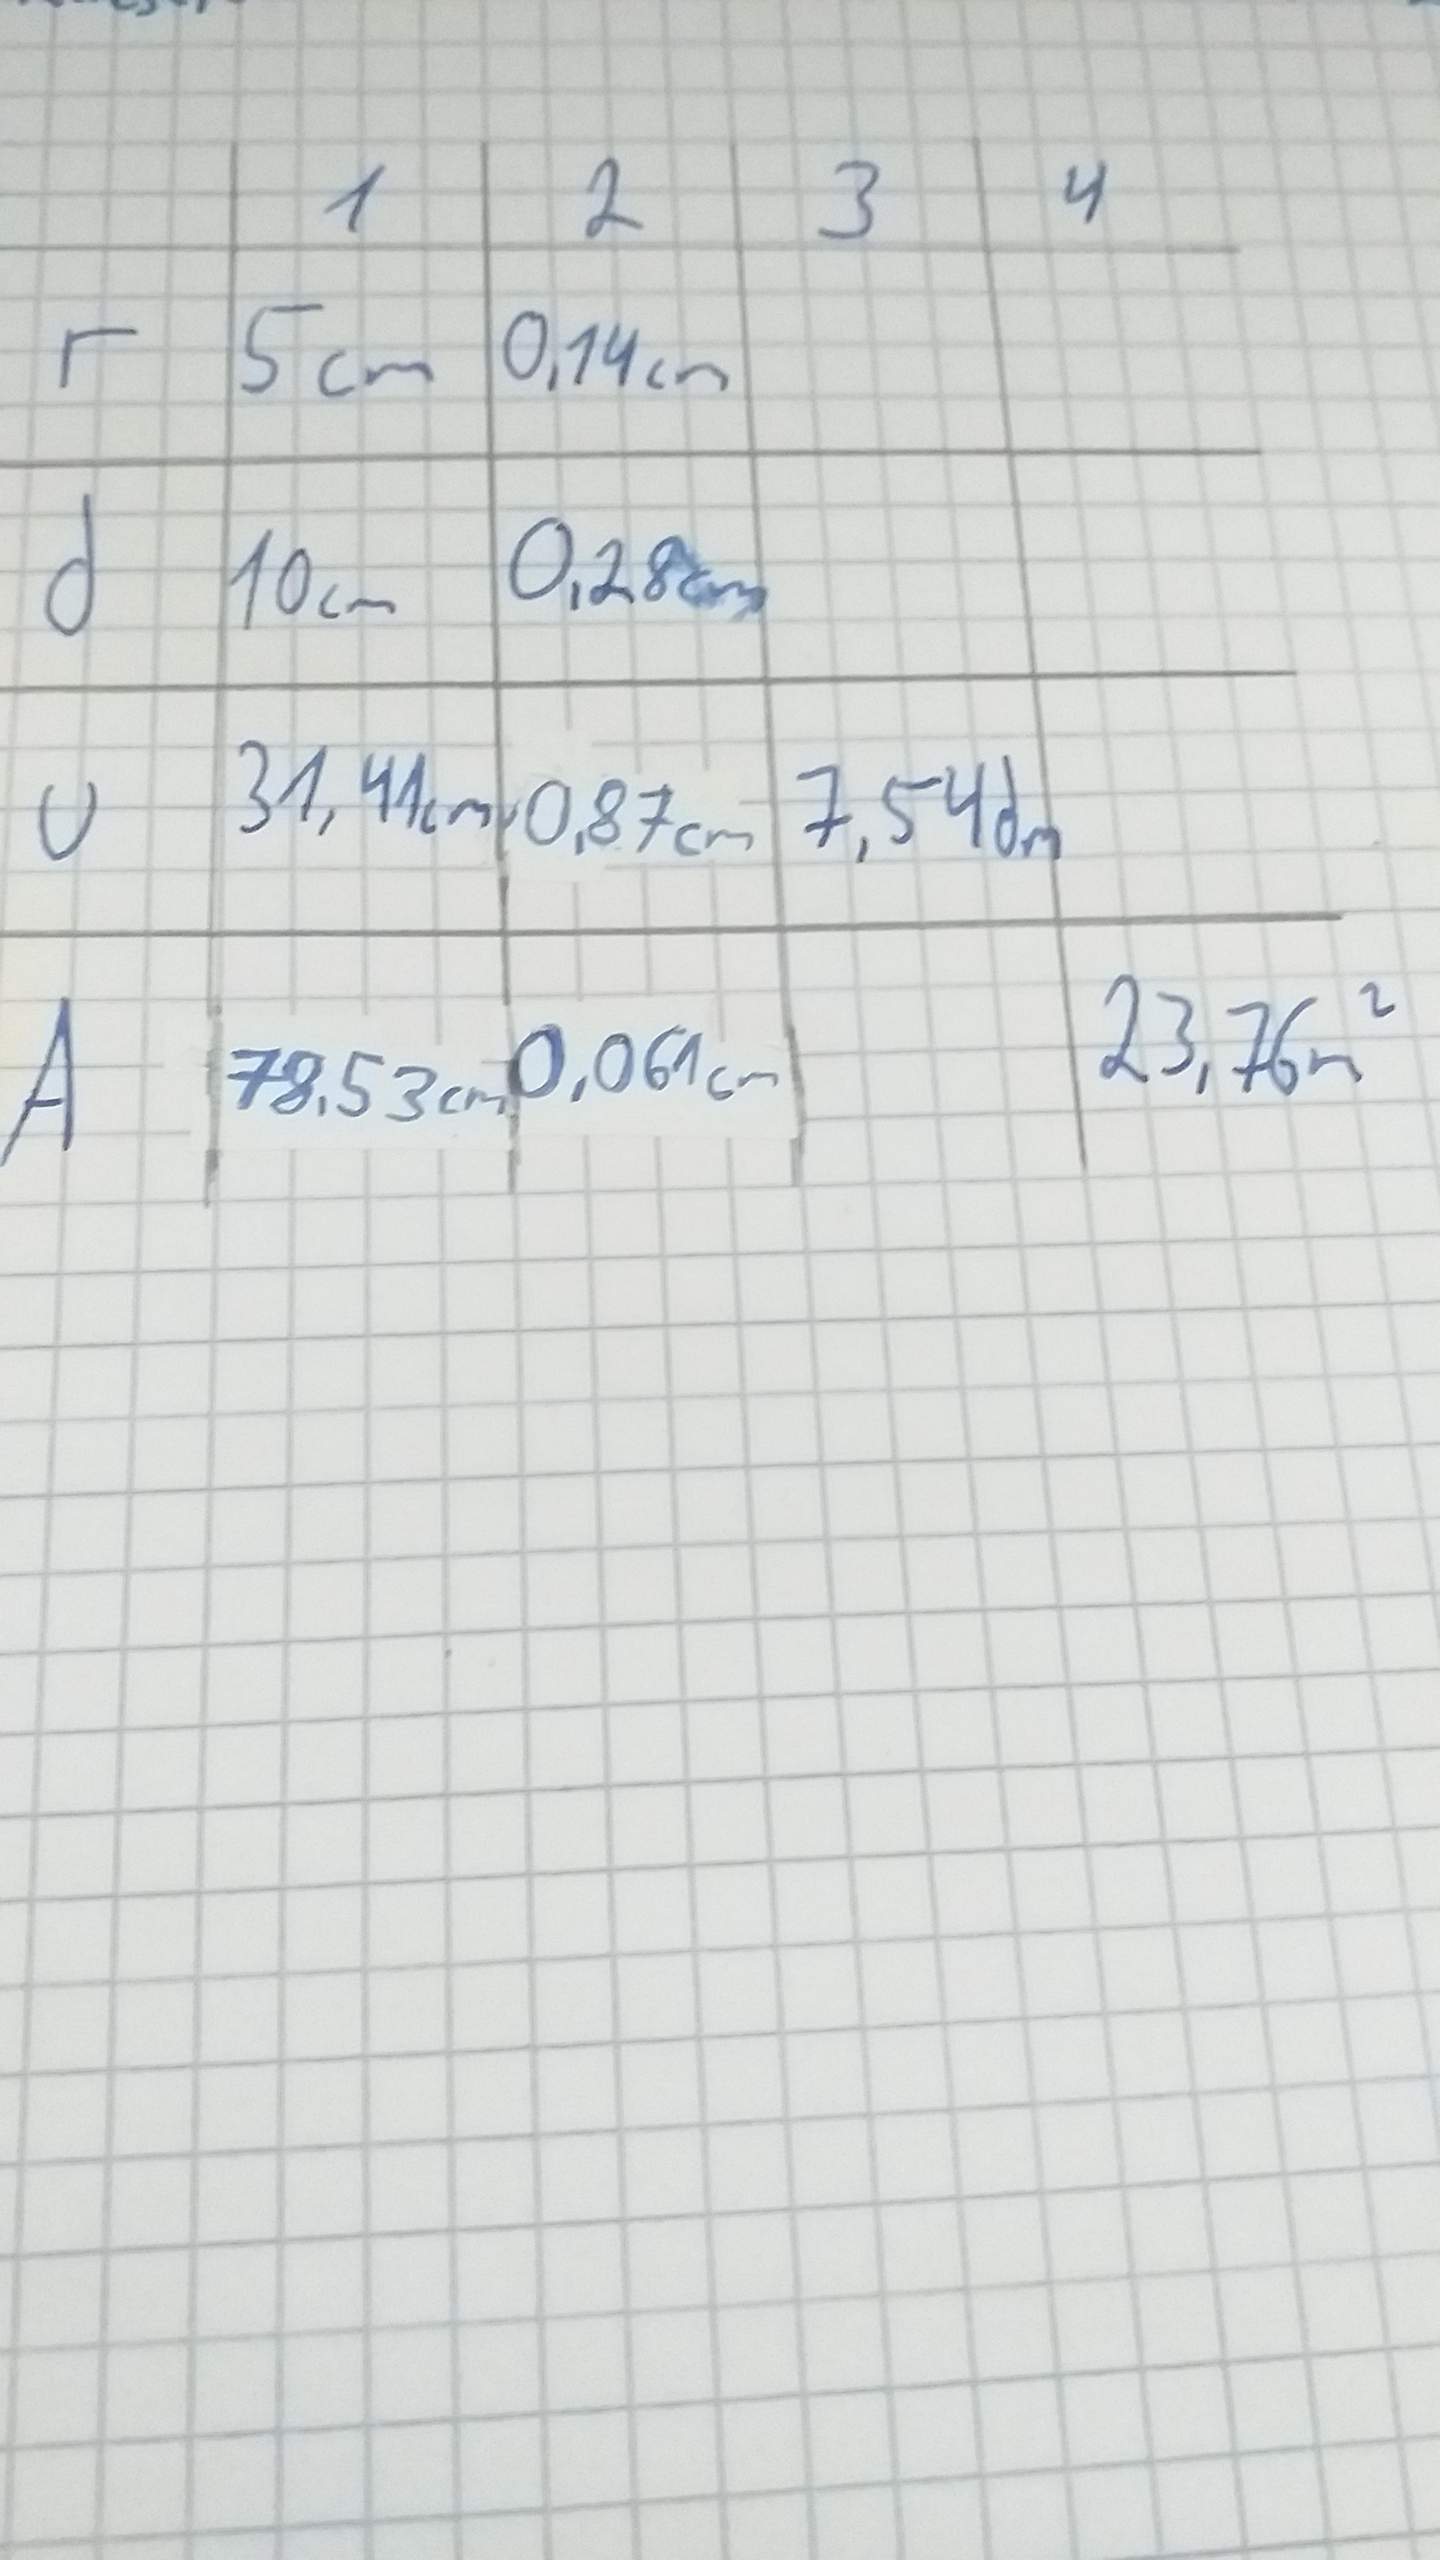 1 2 3 4
r 5cm 0,14cm
d 10cm 0,28cm
U 31,41cm 0,87cm 7,54dm
A 78,53cm 0,061cm 23,76m²